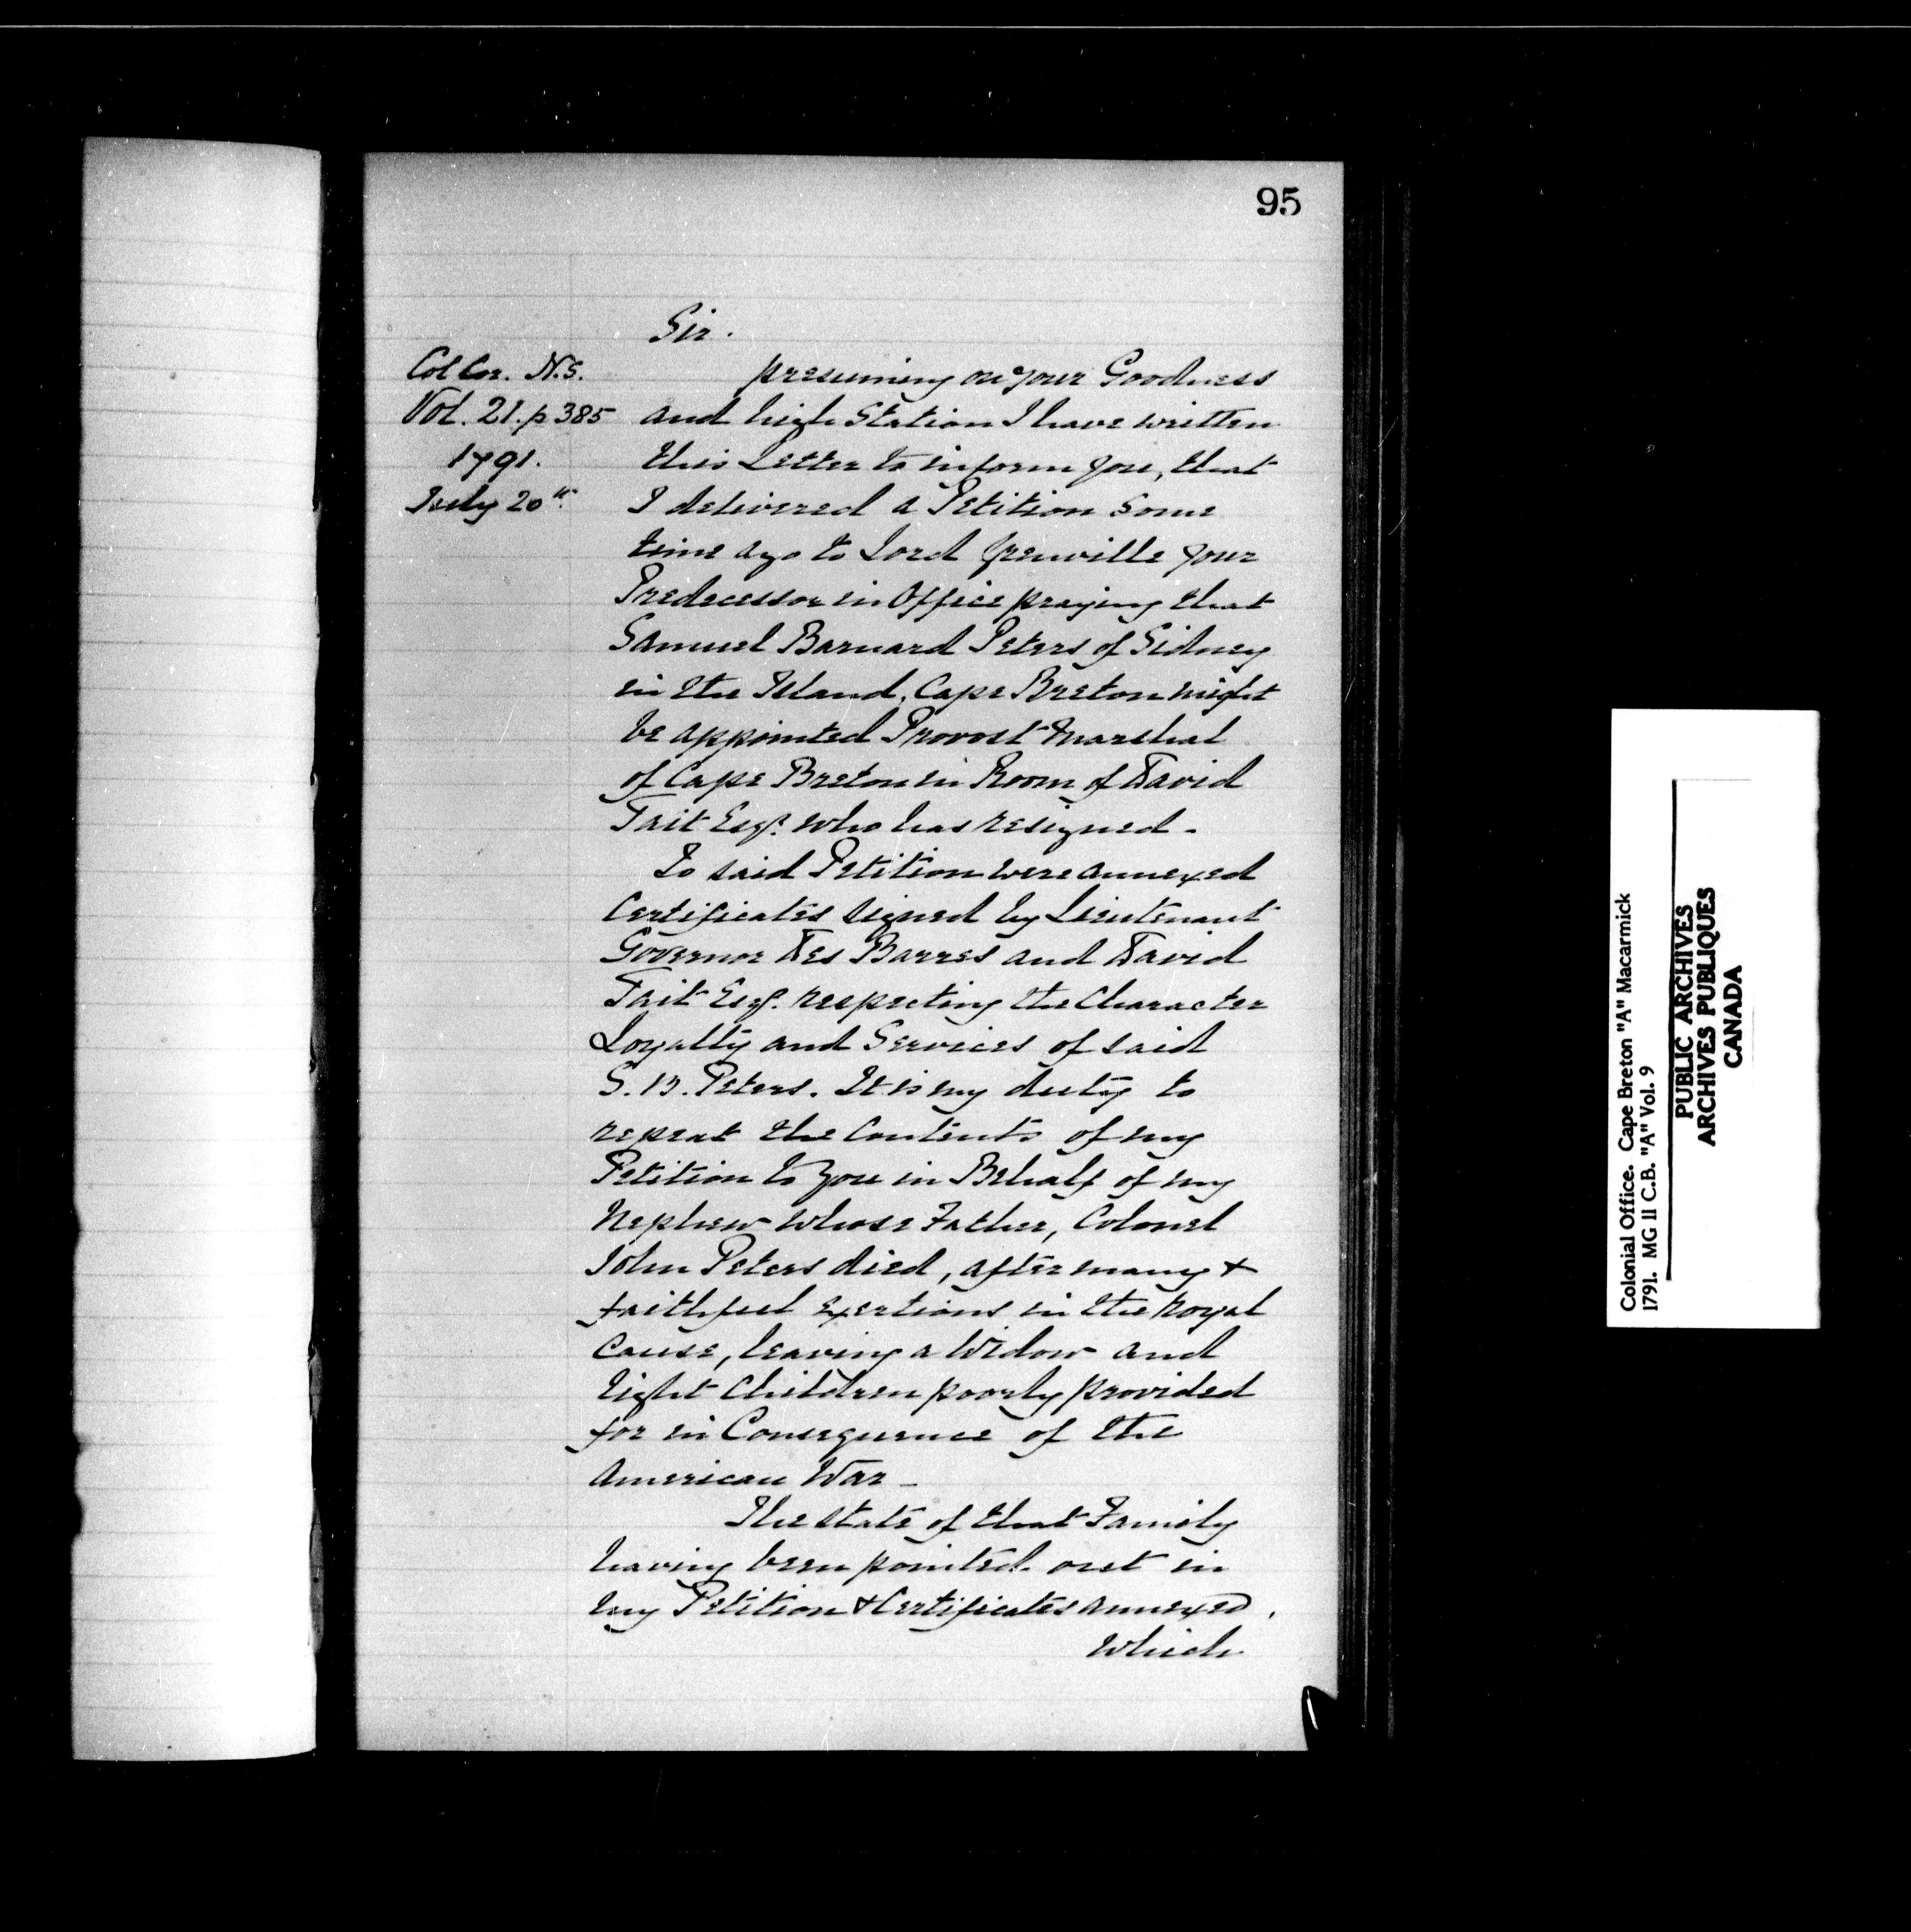 95
Sir.
Col Cor. N.S.
Vol. 21. p 385
1791.
July 20th.
presuming on your Goodness
and high Station I have written
this Letter to inform you, that
I delivered a Petition some
time ago to Lord Grenville your
Predecessor in Office praying that
Samuel Barnard Peters of Sidney
in the Island, Cape Breton might
be appointed Provost Marshal
of Cape Breton in Room of David
Tait Esqr. who has resigned -
To said Petition were annexed
Certificates signed by Lieutenant
Governor Des Barres and David
Tait Esqr. respecting the Character
Loyalty and Services of said
S. B. Peters. It is my duty to
repeat the Contents of my
Petition to you in Behalf of my
Nephew whose Father, Colonel
John Peters died, after many &
faithful exertions in the Royal
Cause, leaving a Widow and
Eight Children poorly provided
for in Consequence of the
American War -
The state of that Family
having been pointed out in
my Petition & Certificates annexed,
Which
Colonial Office. Cape Breton "A" Macarmick
1791. MG 11 C.B. "A" Vol. 9
PUBLIC ARCHIVES
ARCHIVES PUBLIQUES
CANADA